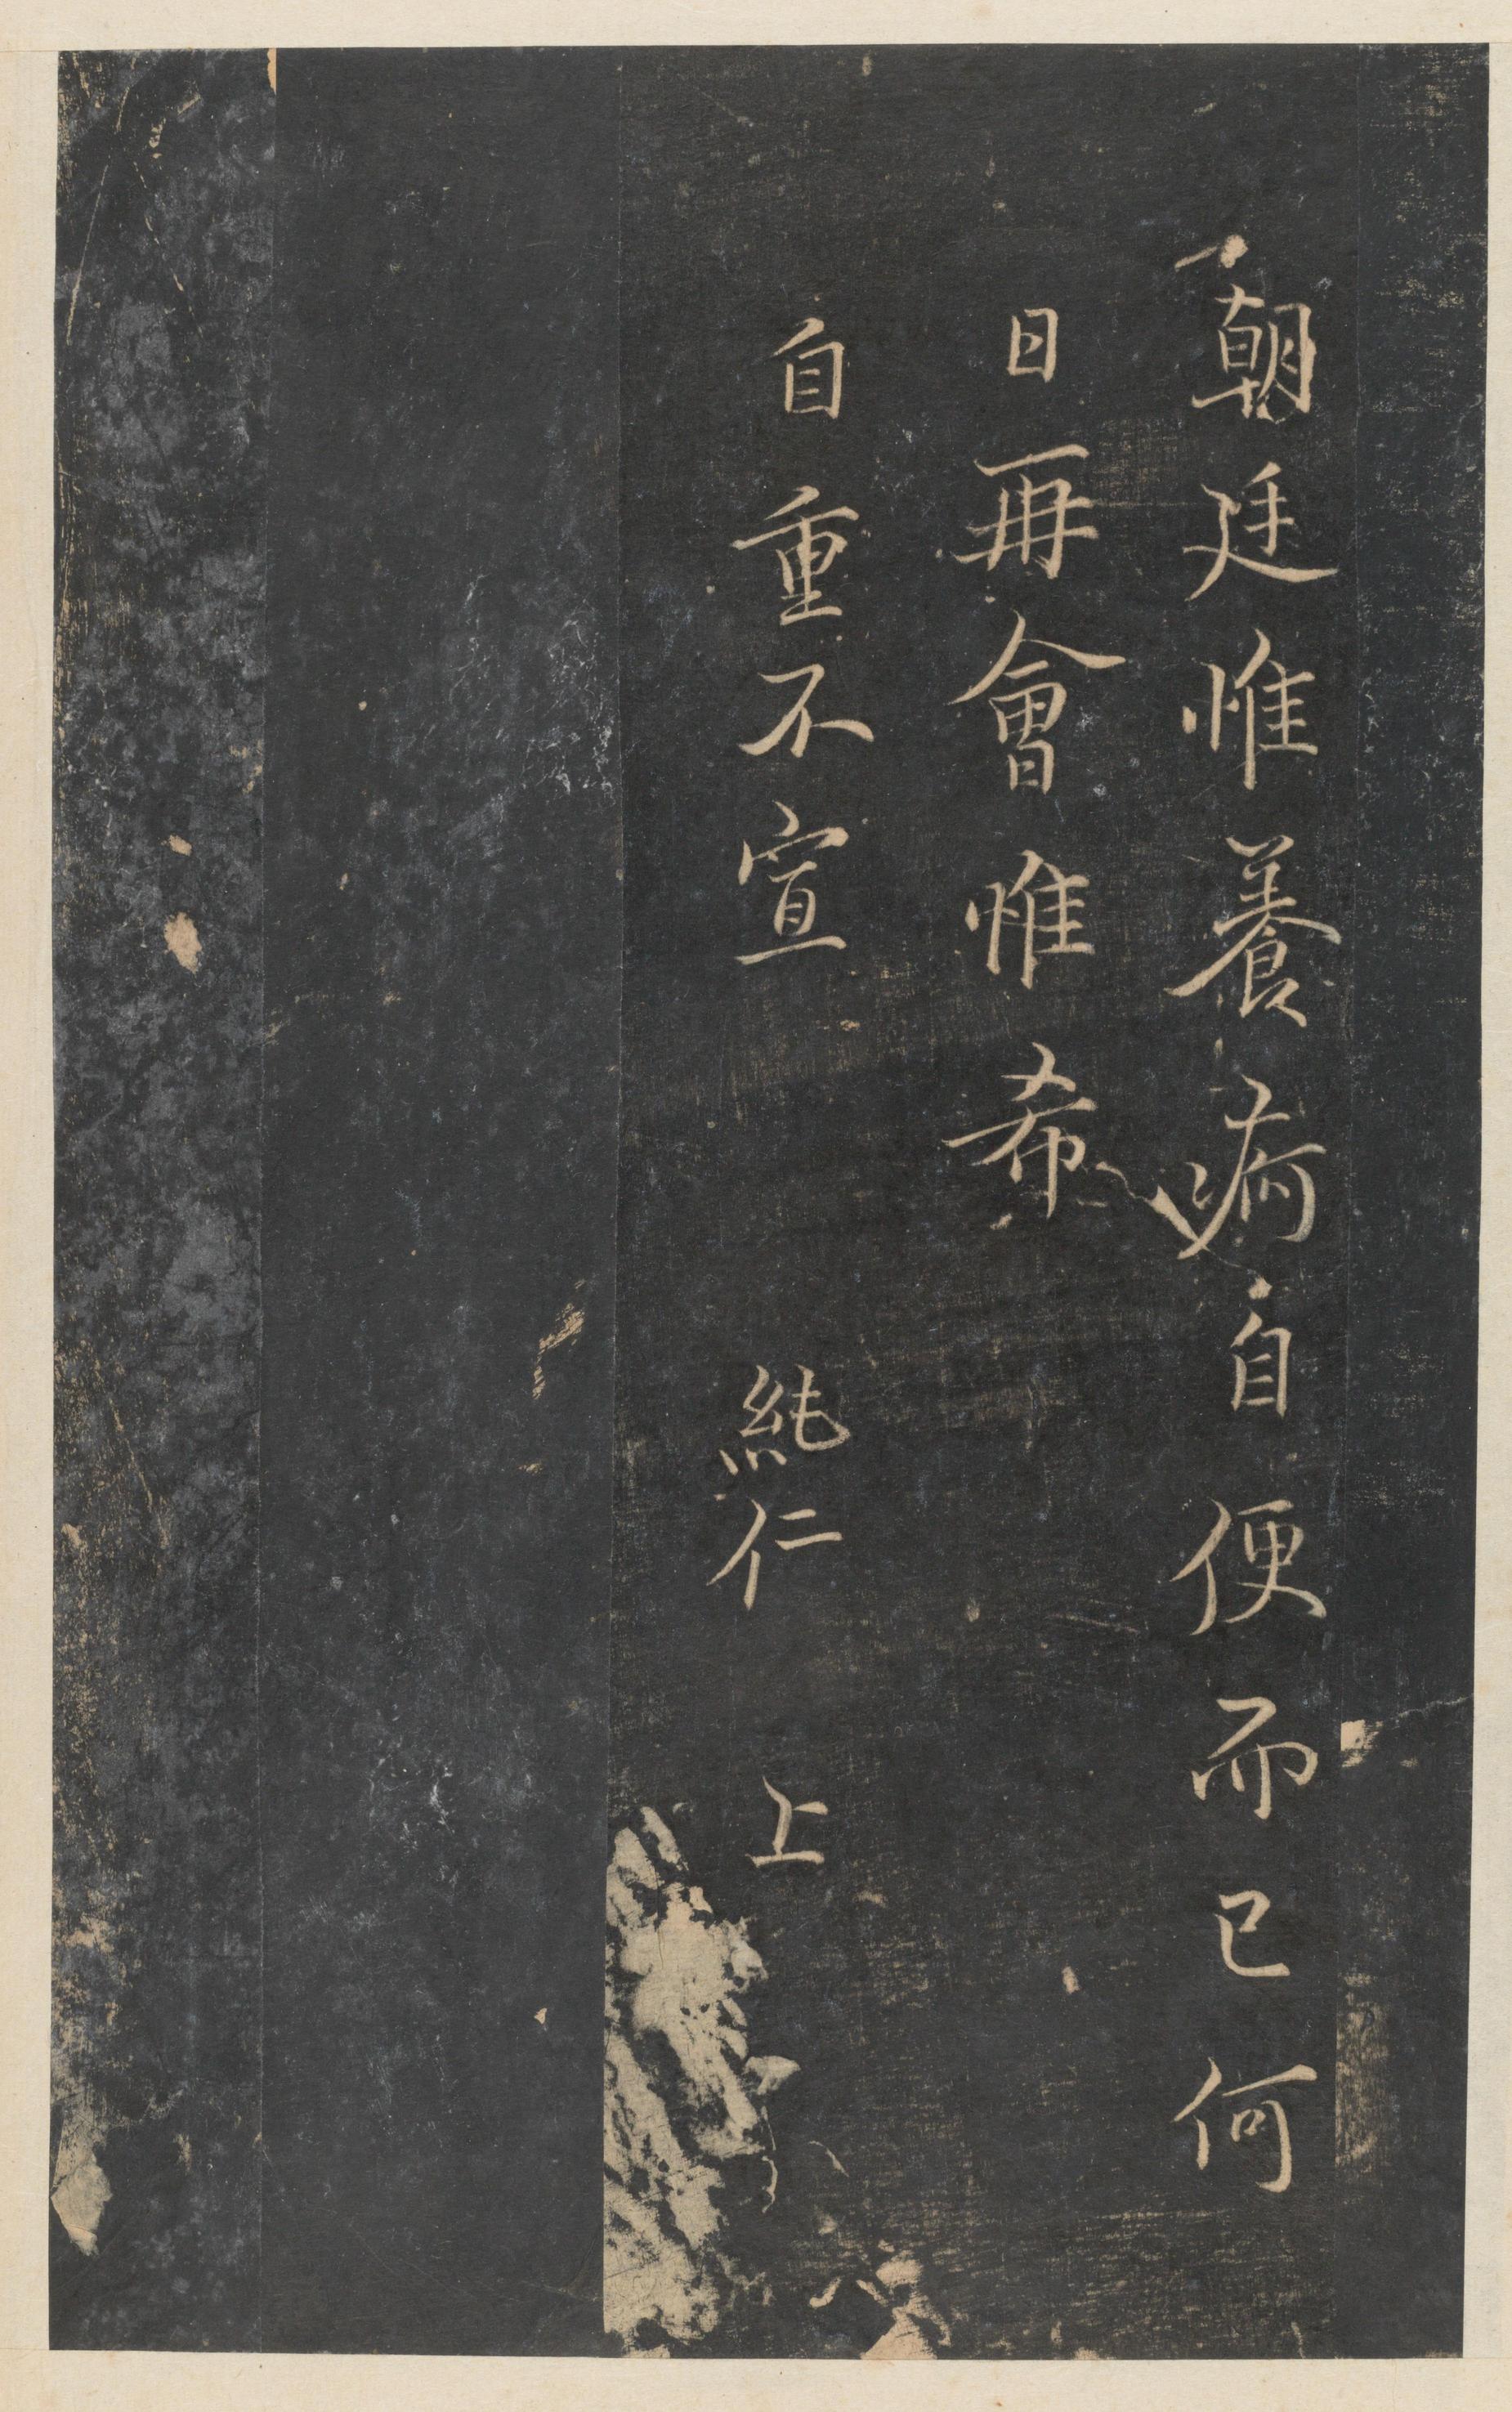 朝廷惟養痾自便而已何
日再會惟希
自重不宣 純仁 上